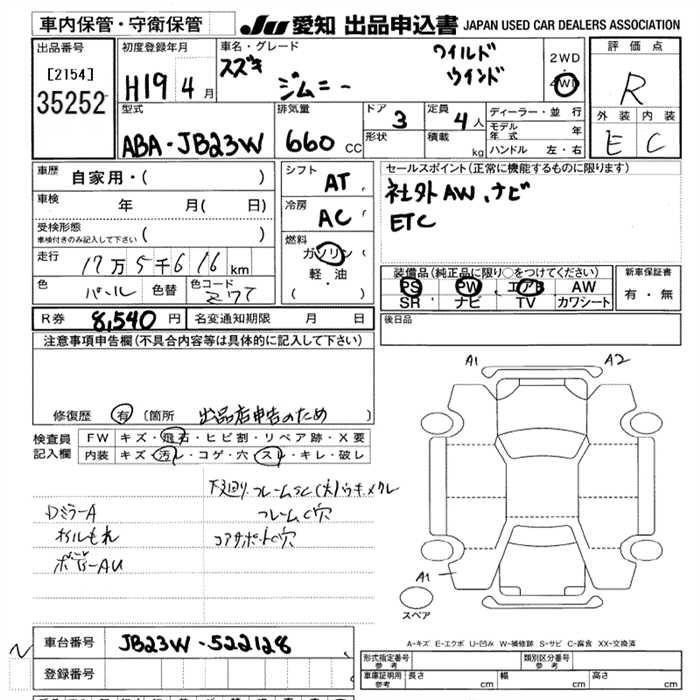 車内保管・守衛保管
JU 愛知 出品申込書 JAPAN USED CAR DEALERS ASSOCIATION
出品番号
[2154]
35252
初度登録年月
H19年4月
車名・グレード
スズキ
ジムニー
ワイルド
ウインド
2WD
4WD
評価点
R
外装 内装
E C
型式
ABA-JB23W
排気量
660 CC
ドア 3
形状
定員 4人
積載 kg
ディーラー・並行
モデル年式 年
ハンドル 左・右
車歴 自家用・( )
車検 年 月( 日)
受検形態
車検付きのみ記入して下さい ( )
走行 17万5千616km
色 パール 色替 色コード Z7T
シフト AT
冷房 AC
燃料
ガソリン
軽・油
( )
セールスポイント(正常に機能するものに限ります)
社外AW、ナビ
ETC
装備品(純正品に限り○をつけてください)
PS PW エアB AW
SR ナビ TV カワシート
新車保証書
有・無
R券 8,540円 名変通知期限 月 日
後日品
注意事項申告欄(不具合内容等は具体的に記入して下さい)
修復歴 有 (箇所 出品店申告のため )
検査員記入欄
FW キズ・飛石・ヒビ割・リペア跡・X要
内装 キズ・汚レ・コゲ・穴・スレ・キレ・破レ
下廻り・フレームSC(大)ウキ、メクレ
DミラーA
フレームC穴
オイルもれ
コアサポートC穴
ボデーAU
A1
A2
A1
スペア
A-キズ E-エクボ U-凹み W-補修跡 S-サビ C-腐食 XX-交換済
車台番号 JB23W-522128
登録番号
形式指定番号 参考
類別区分番号 参考
車庫証明用 参考 長さ cm 幅 cm 高さ cm